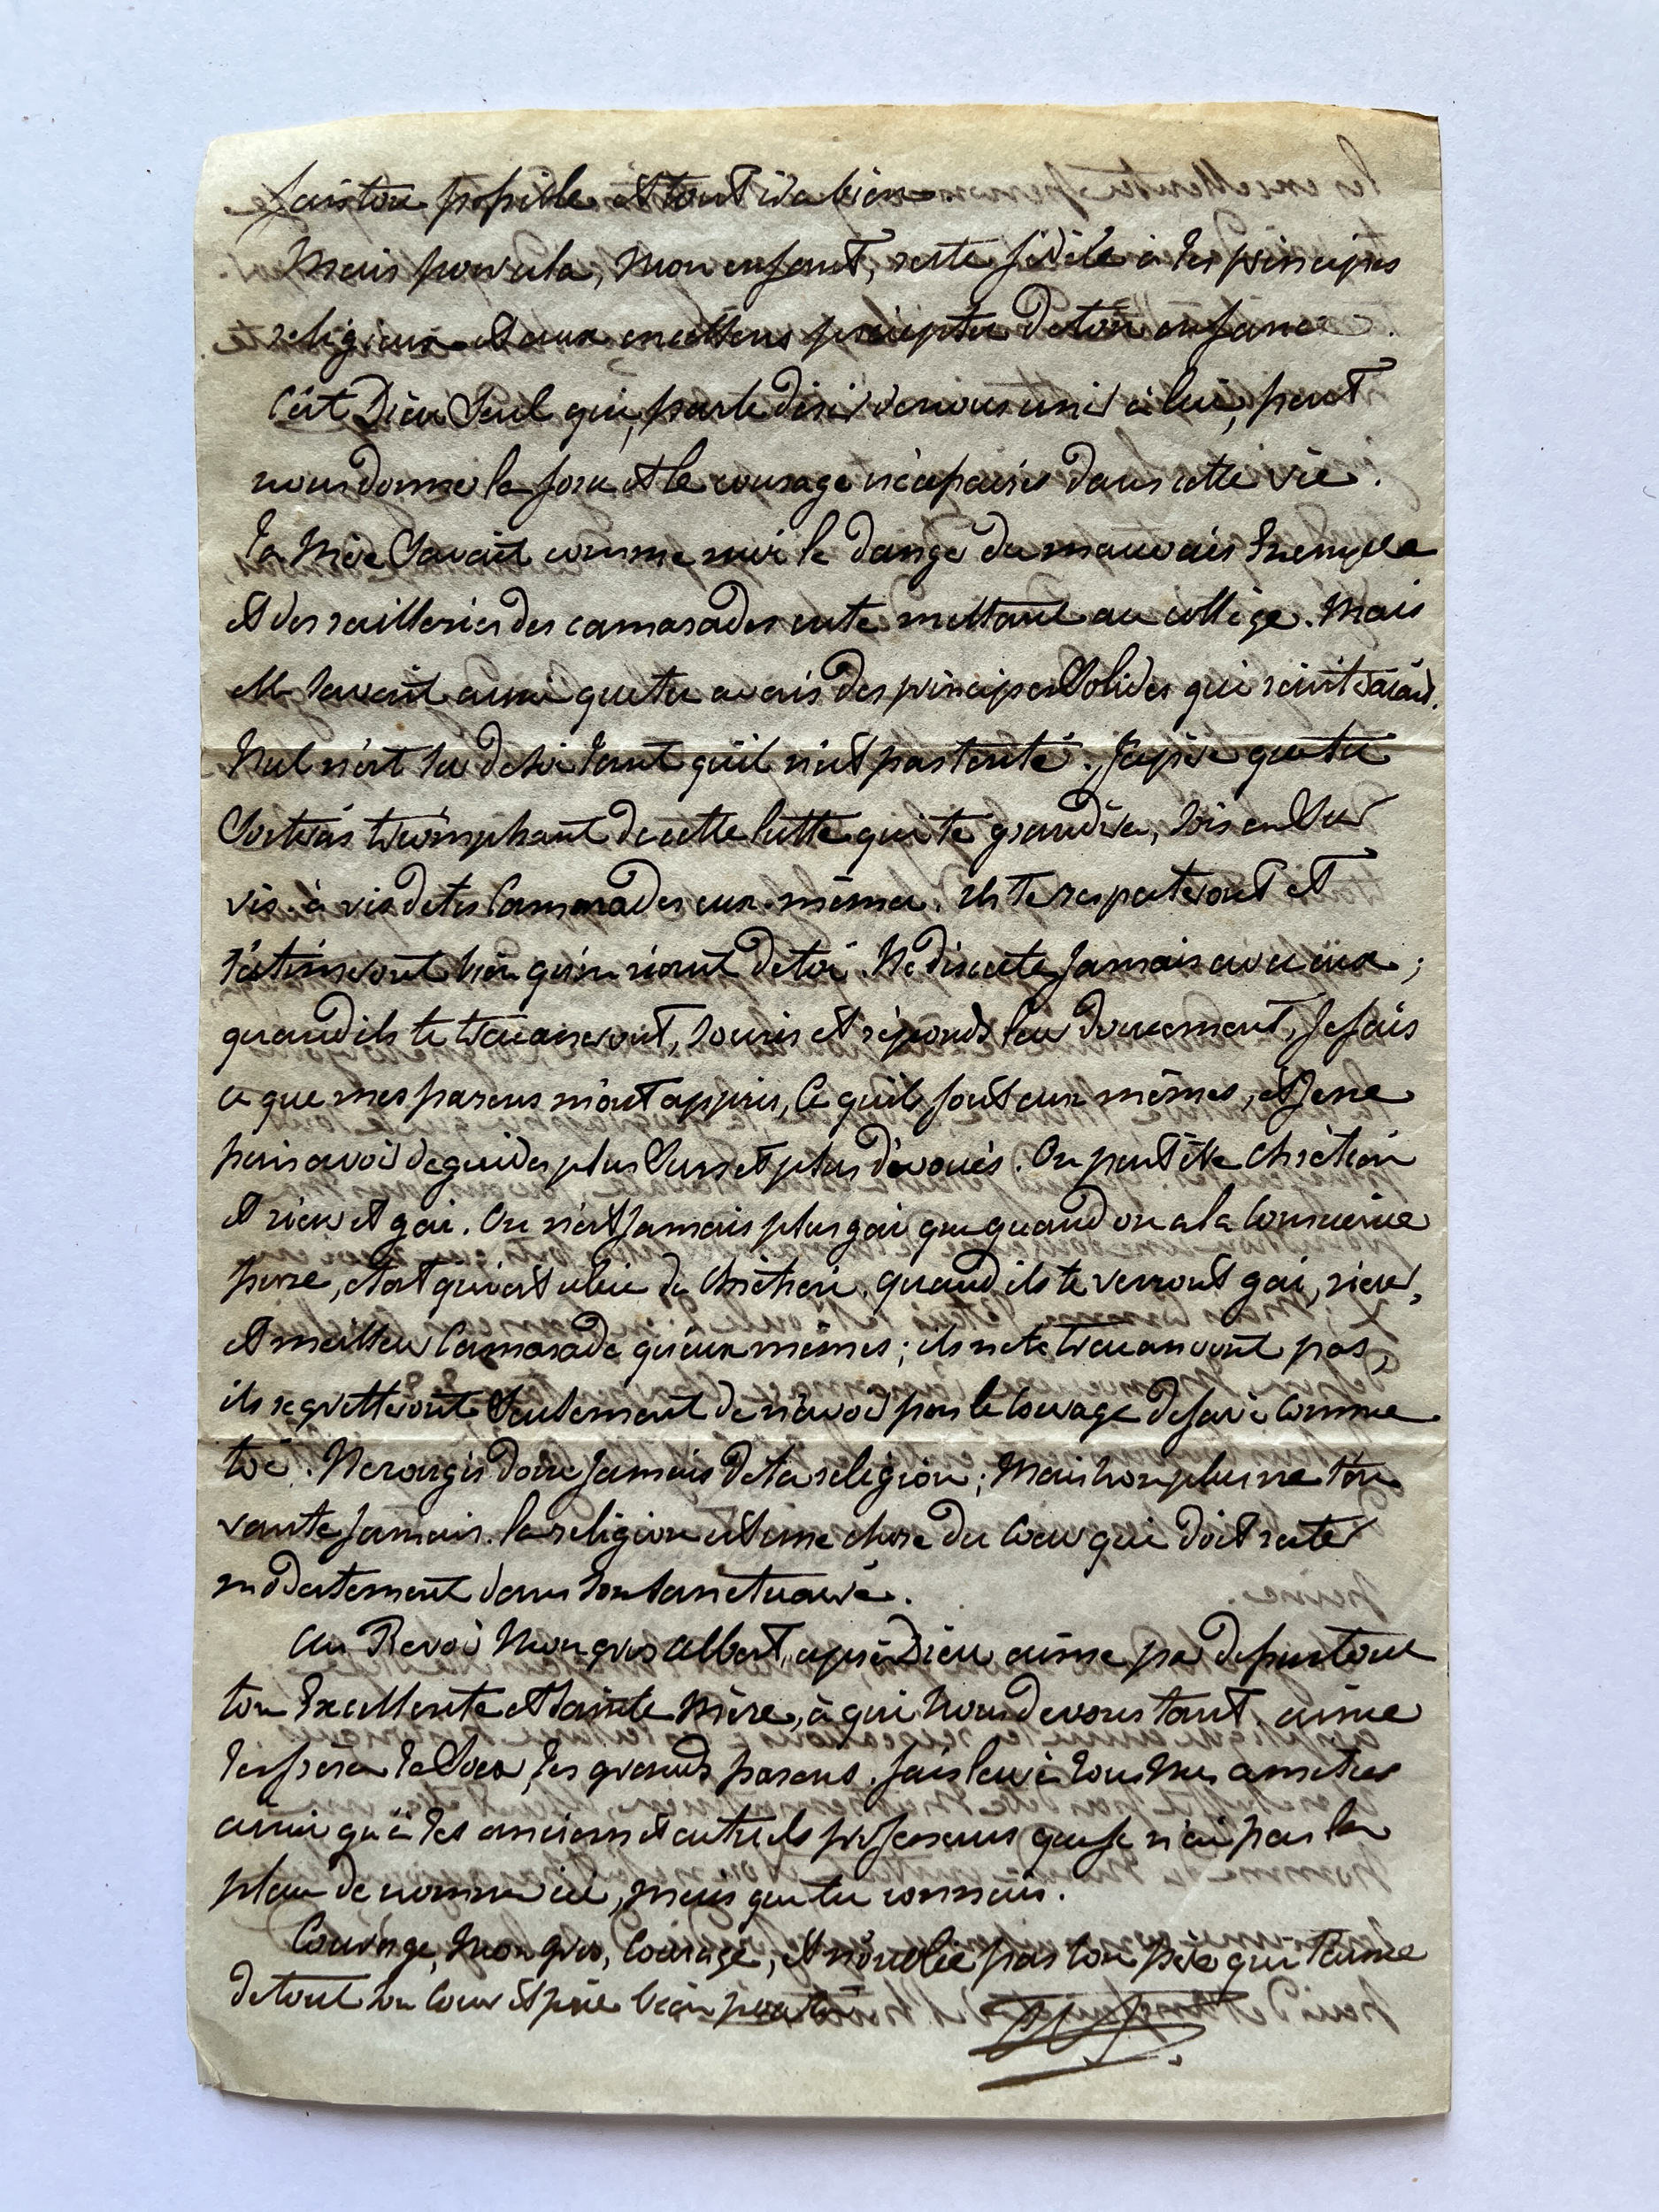 fais ton possible et tout ira bien.
Mais pour cela, Mon enfant, reste fidèle à tes principes
religieux et aux excellens préceptes de ton enfance.
C'est Dieu Seul qui, par le désir de nous unir à lui, peut
nous donner la force et le courage nécessaires dans cette vie.
Ta Mère Savait comme moi le danger du mauvais Exemple
et des railleries des camarades en te mettant au collège. Mais
elle Savait aussi que tu avais des principes Solides qui résisteraient.
Nul n'est sûr de soi tant qu'il n'est pas tenté. J'espère que tu
Sortiras triomphant de cette lutte qui te grandira, Sois en Sûr
vis à vis de tes Camarades eux-mêmes. Ils te respecteront et
t'estimeront bien qu'en riant de toi. Ne discute Jamais avec eux ;
quand ils te tracasseront, Souris et réponds leur doucement, Je fais
ce que mes parens m'ont appris, Ce qu'ils font eux mêmes, et Je ne
puis avoir de guides plus Surs et plus dévoués. On peut être Chrétien
et rieur et gai. On n'est Jamais plus gai que quand on a la Conscience
pure, et c'est celle du Chrétien. quand ils te verront gai, rieur,
et meilleur Camarade qu'eux mêmes ; ils ne te tracasseront pas,
ils regretteront Seulement de n'avoir pas le Courage de faire Comme
toi. Ne rougis donc Jamais de ta religion ; Mais non plus ne t'en
vante Jamais. la religion est une chose du Cœur qui doit rester
modestement dans Son Sanctuaire.
Au Revoir Mon gros Albert, après Dieu aime par dessus tout
ton Excellente et Sainte Mère, à qui Nous devons tant. aime
tes frères ta Sœur, tes grands parens. fais leur à tous Mes amitiés
ainsi qu'à tes anciens et actuels professeurs que Je n'ai pas la
place de nommer ici, mais que tu connais.
Courage, Mon gros, Courage, et n'oublie pas ton père qui t'aime
de tout Son Cœur et prie bien pour toi